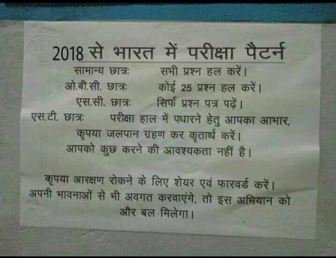 2018 से भारत में परीक्षा पैटर्न
सामान्य छात्रः सभी प्रश्न हल करें।
ओ.बी.सी. छात्रः कोई 25 प्रश्न हल करें।
एस.सी. छात्रः सिर्फ प्रश्न पत्र पढ़ें।
एस.टी. छात्रः परीक्षा हाल में पधारने हेतु आपका आभार,
कृपया जलपान ग्रहण कर कृतार्थ करें।
आपको कुछ करने की आवश्यकता नहीं है।
कृपया आरक्षण रोकने के लिए शेयर एवं फारवर्ड करें।
अपनी भावनाओं से भी अवगत करवाएंगे, तो इस अभियान को
और बल मिलेगा।